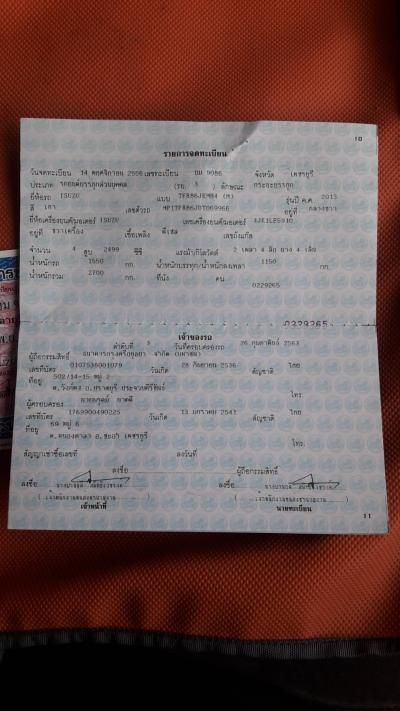 10
รายการจดทะเบียน
วันจดทะเบียน 14 พฤศจิกายน 2556 เลขทะเบียน บม 9086 จังหวัด เพชรบุรี
ประเภท รถยนต์บรรทุกส่วนบุคคล (รย. 3 ) ลักษณะ กระบะบรรทุก
ยี่ห้อรถ ISUZU แบบ รุ่นปี ค.ศ. 2013
สี เทา เลขตัวรถ อยู่ที่
ยี่ห้อเครื่องยนต์/มอเตอร์ ISUZU เลขเครื่องยนต์/มอเตอร์
อยู่ที่ ขวาเครื่อง เชื้อเพลิง ดีเซล เลขถังแก๊ส
จำนวน 4 สูบ 2499 ซีซี แรงม้า/กิโลวัตต์ 2 เพลา 4 ล้อ ยาง 4 เส้น
น้ำหนักรถ 1550 กก. น้ำหนักบรรทุก/น้ำหนักลงเพลา 1150 กก.
น้ำหนักรวม 2700 กก. ที่นั่ง คน
0229265
0229265
เจ้าของรถ
ลำดับที่ 3 วันที่ครอบครองรถ 26 กุมภาพันธ์ 2563
ผู้ถือกรรมสิทธิ์ ธนาคารกรุงศรีอยุธยา จำกัด (มหาชน)
เลขที่บัตร 0107536001079 วันเกิด 28 กันยายน 2536 สัญชาติ ไทย
ที่อยู่ 502/14-15 หมู่ 2
ต.วังก์พง อ.ปราณบุรี ประจวบคีรีขันธ์ โทร.
ผู้ครอบครอง
เลขที่บัตร 1769900490225 วันเกิด 13 มกราคม 2541 สัญชาติ ไทย
ที่อยู่ 69 หมู่ 6
ต.หนองศาลา อ.ชะอำ เพชรบุรี โทร.
สัญญาเช่าซื้อเลขที่ ลงวันที่
ลงชื่อ ผู้ถือกรรมสิทธิ์
ลงชื่อ ลงชื่อ
เจ้าหน้าที่ นายทะเบียน
11